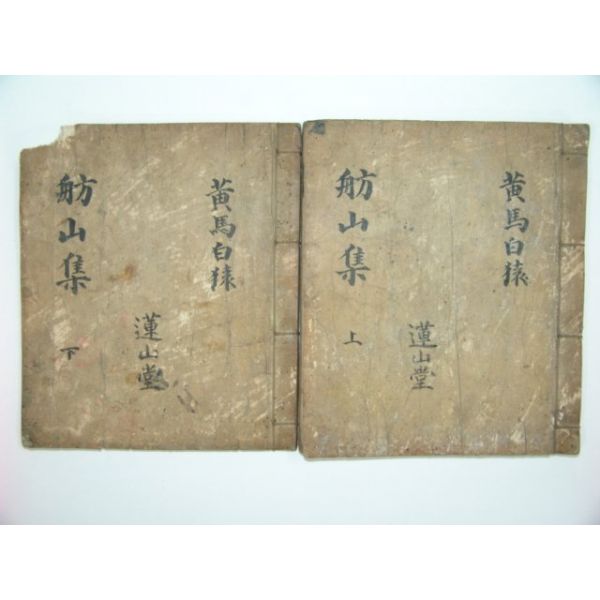 舫山集
下
黃馬白猿
蓮山堂
舫山集
上
黃馬白猿
蓮山堂